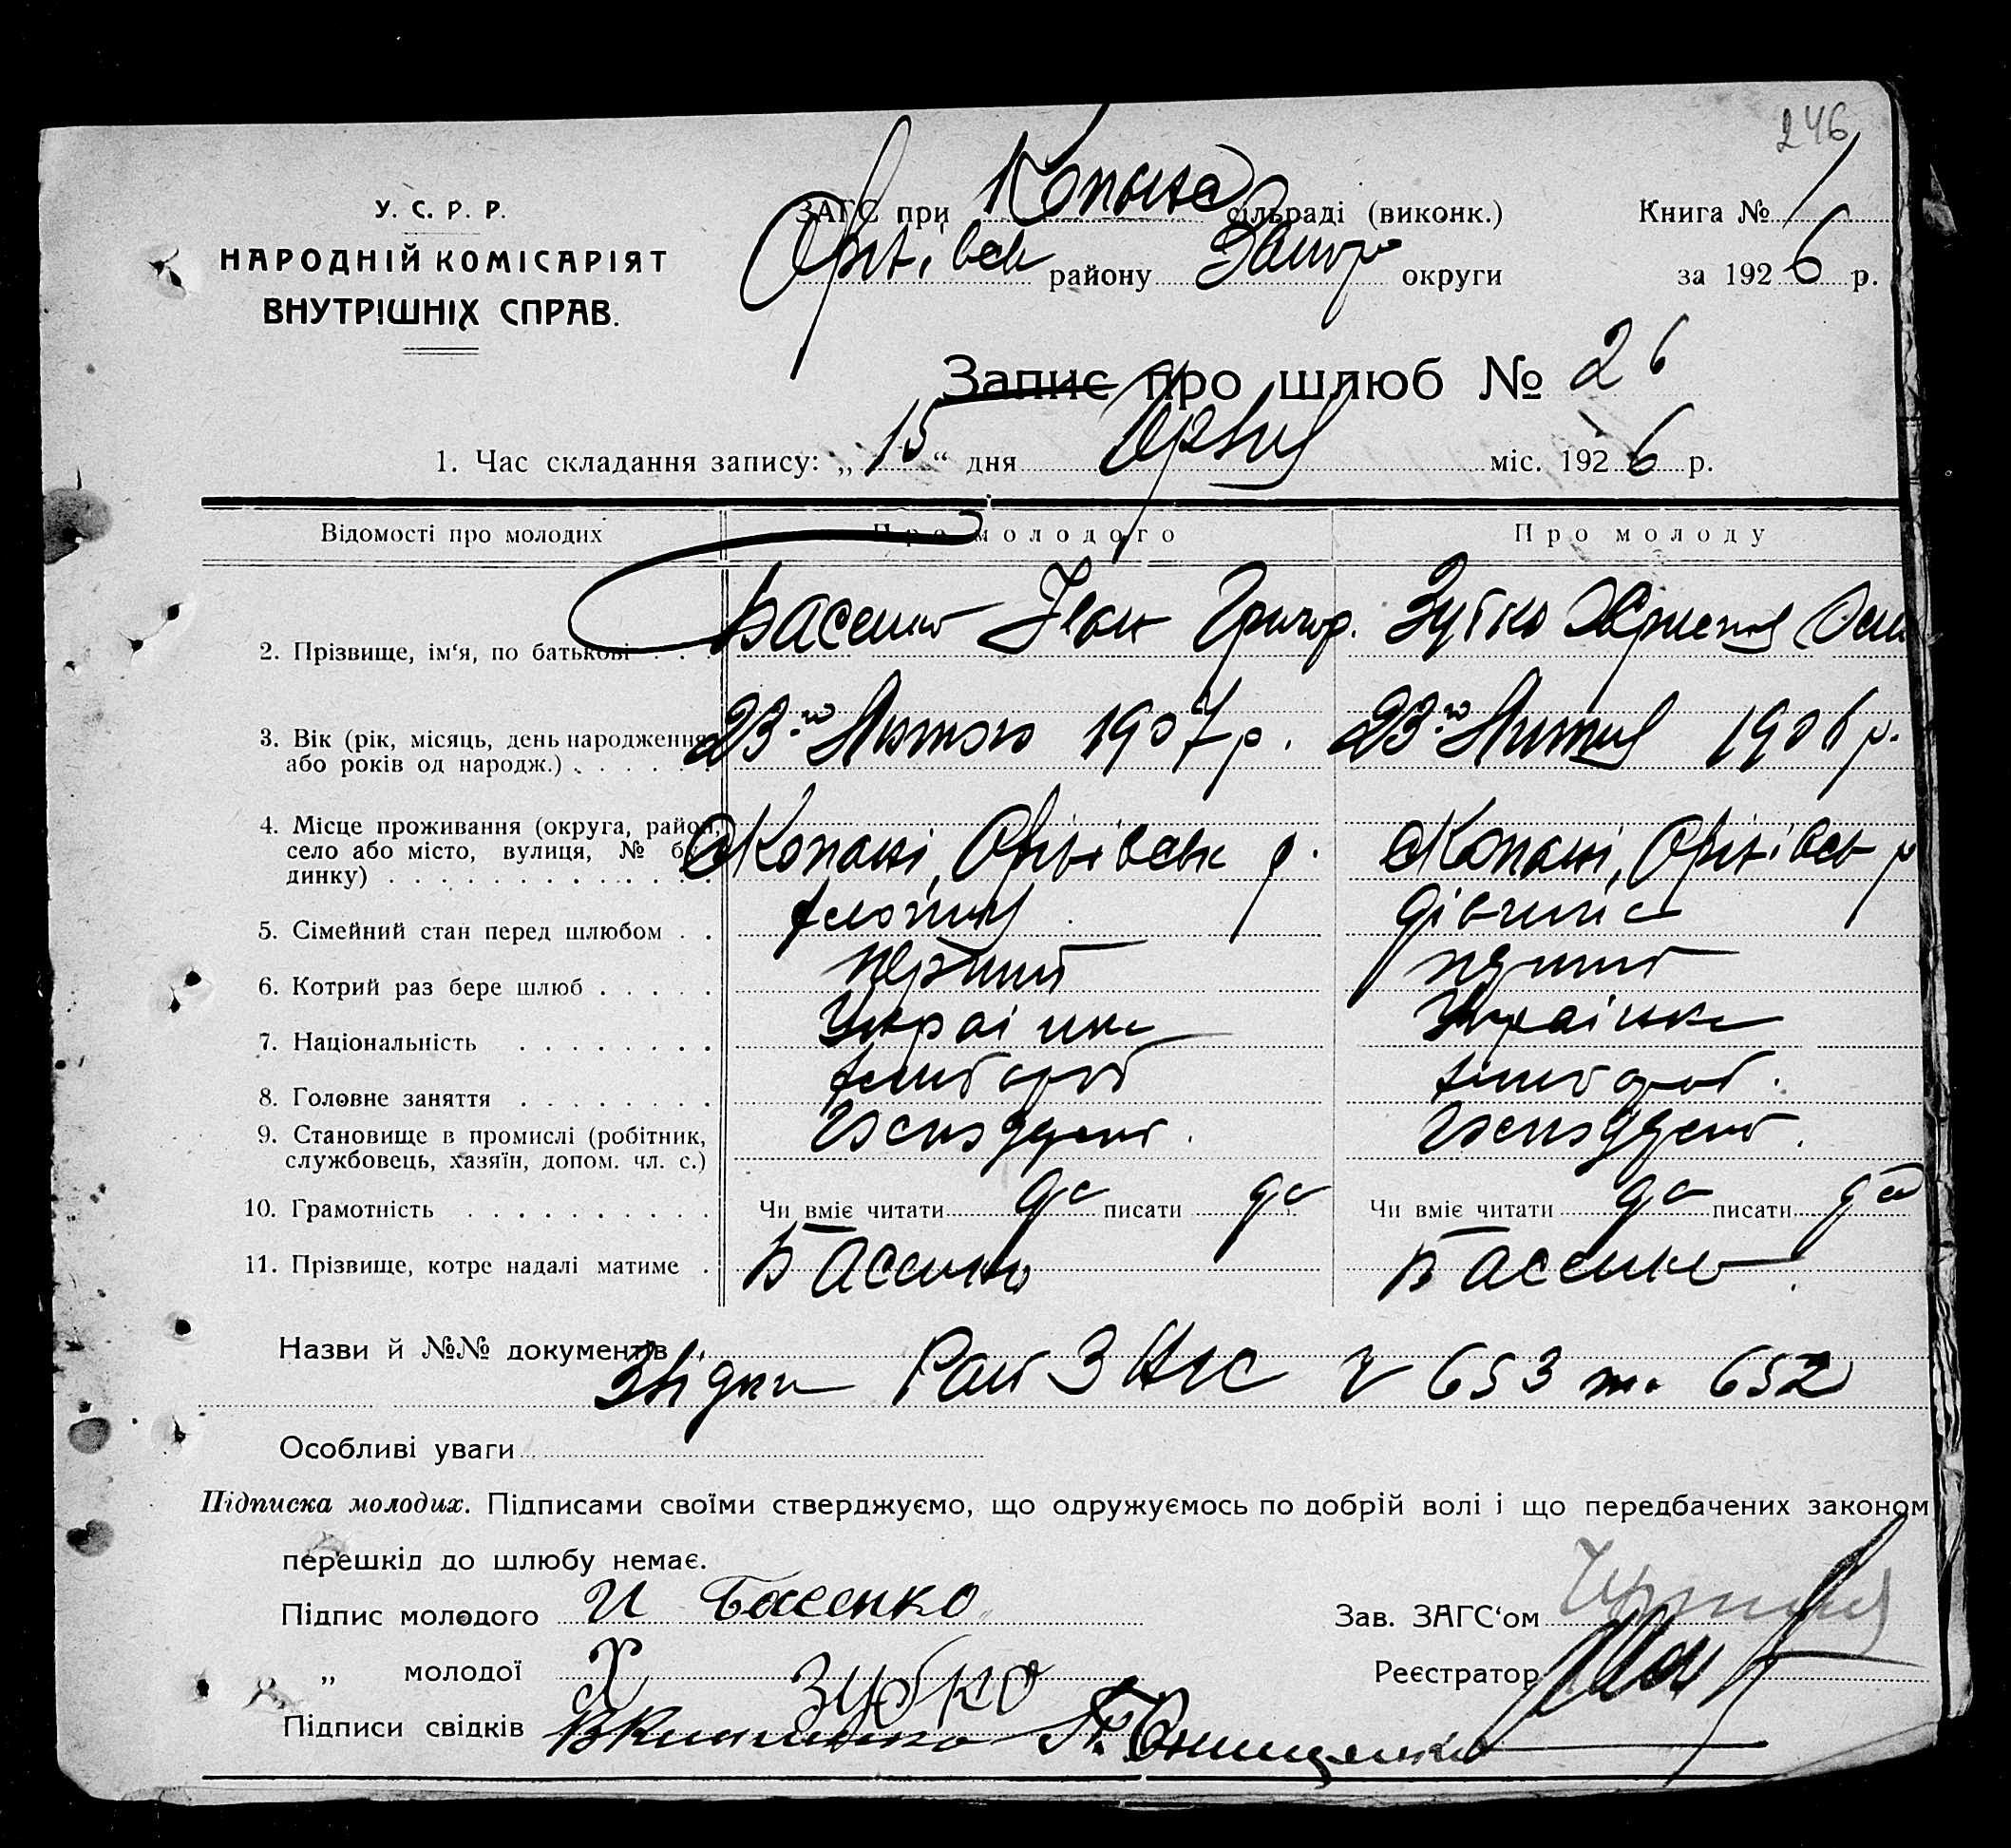 246
У. С. Р. Р.
НАРОДНІЙ КОМІСАРІЯТ
ВНУТРІШНІХ СПРАВ.
ЗАГС при Копанс сільраді (виконк.)
Оріхівськ району Запор округи
Книга № 1
за 1926 р.
Запис про шлюб № 26
1. Час складання запису: „15“ дня міс. 1926 р.
Відомості про молодих Про молодого Про молоду
2. Прізвище, ім‘я, по батькові . . . Басенко Іван Григор. Зубко Христя
3. Вік (рік, місяць, день народження 23-го Лютого 1907 р. 23-го Лютого 1906 р.
або років од народж.) . . . . . .
4. Місце проживання (округа, район, с Копані, Оріхівськ р. с Копані, Оріхівсь р
село або місто, вулиця, № бу-
динку) . . . . . . . . . . . . . .
5. Сімейний стан перед шлюбом . . дівчина
6. Котрий раз бере шлюб . . . . . перший перший
7. Національність . . . . . . . . Українка
8. Головне заняття . . . . . . . .
9. Становище в промислі (робітник,
службовець, хазяїн, допом. чл. с.)
10. Грамотність . . . . . . . . . . Чи вміє читати да писати да Чи вміє читати да писати да
11. Прізвище, котре надалі матиме . Басенко Басенко
Назви й №№ документів
Звідки 653 та 652
Особливі уваги
Підписка молодих. Підписами своїми стверджуємо, що одружуємось по добрій волі і що передбачених законом
перешкід до шлюбу немає.
Підпис молодого И Басенко
Зав. ЗАГС‘ом
„ молодої Х Зубко
Реєстратор
Підписи свідків Онищенко